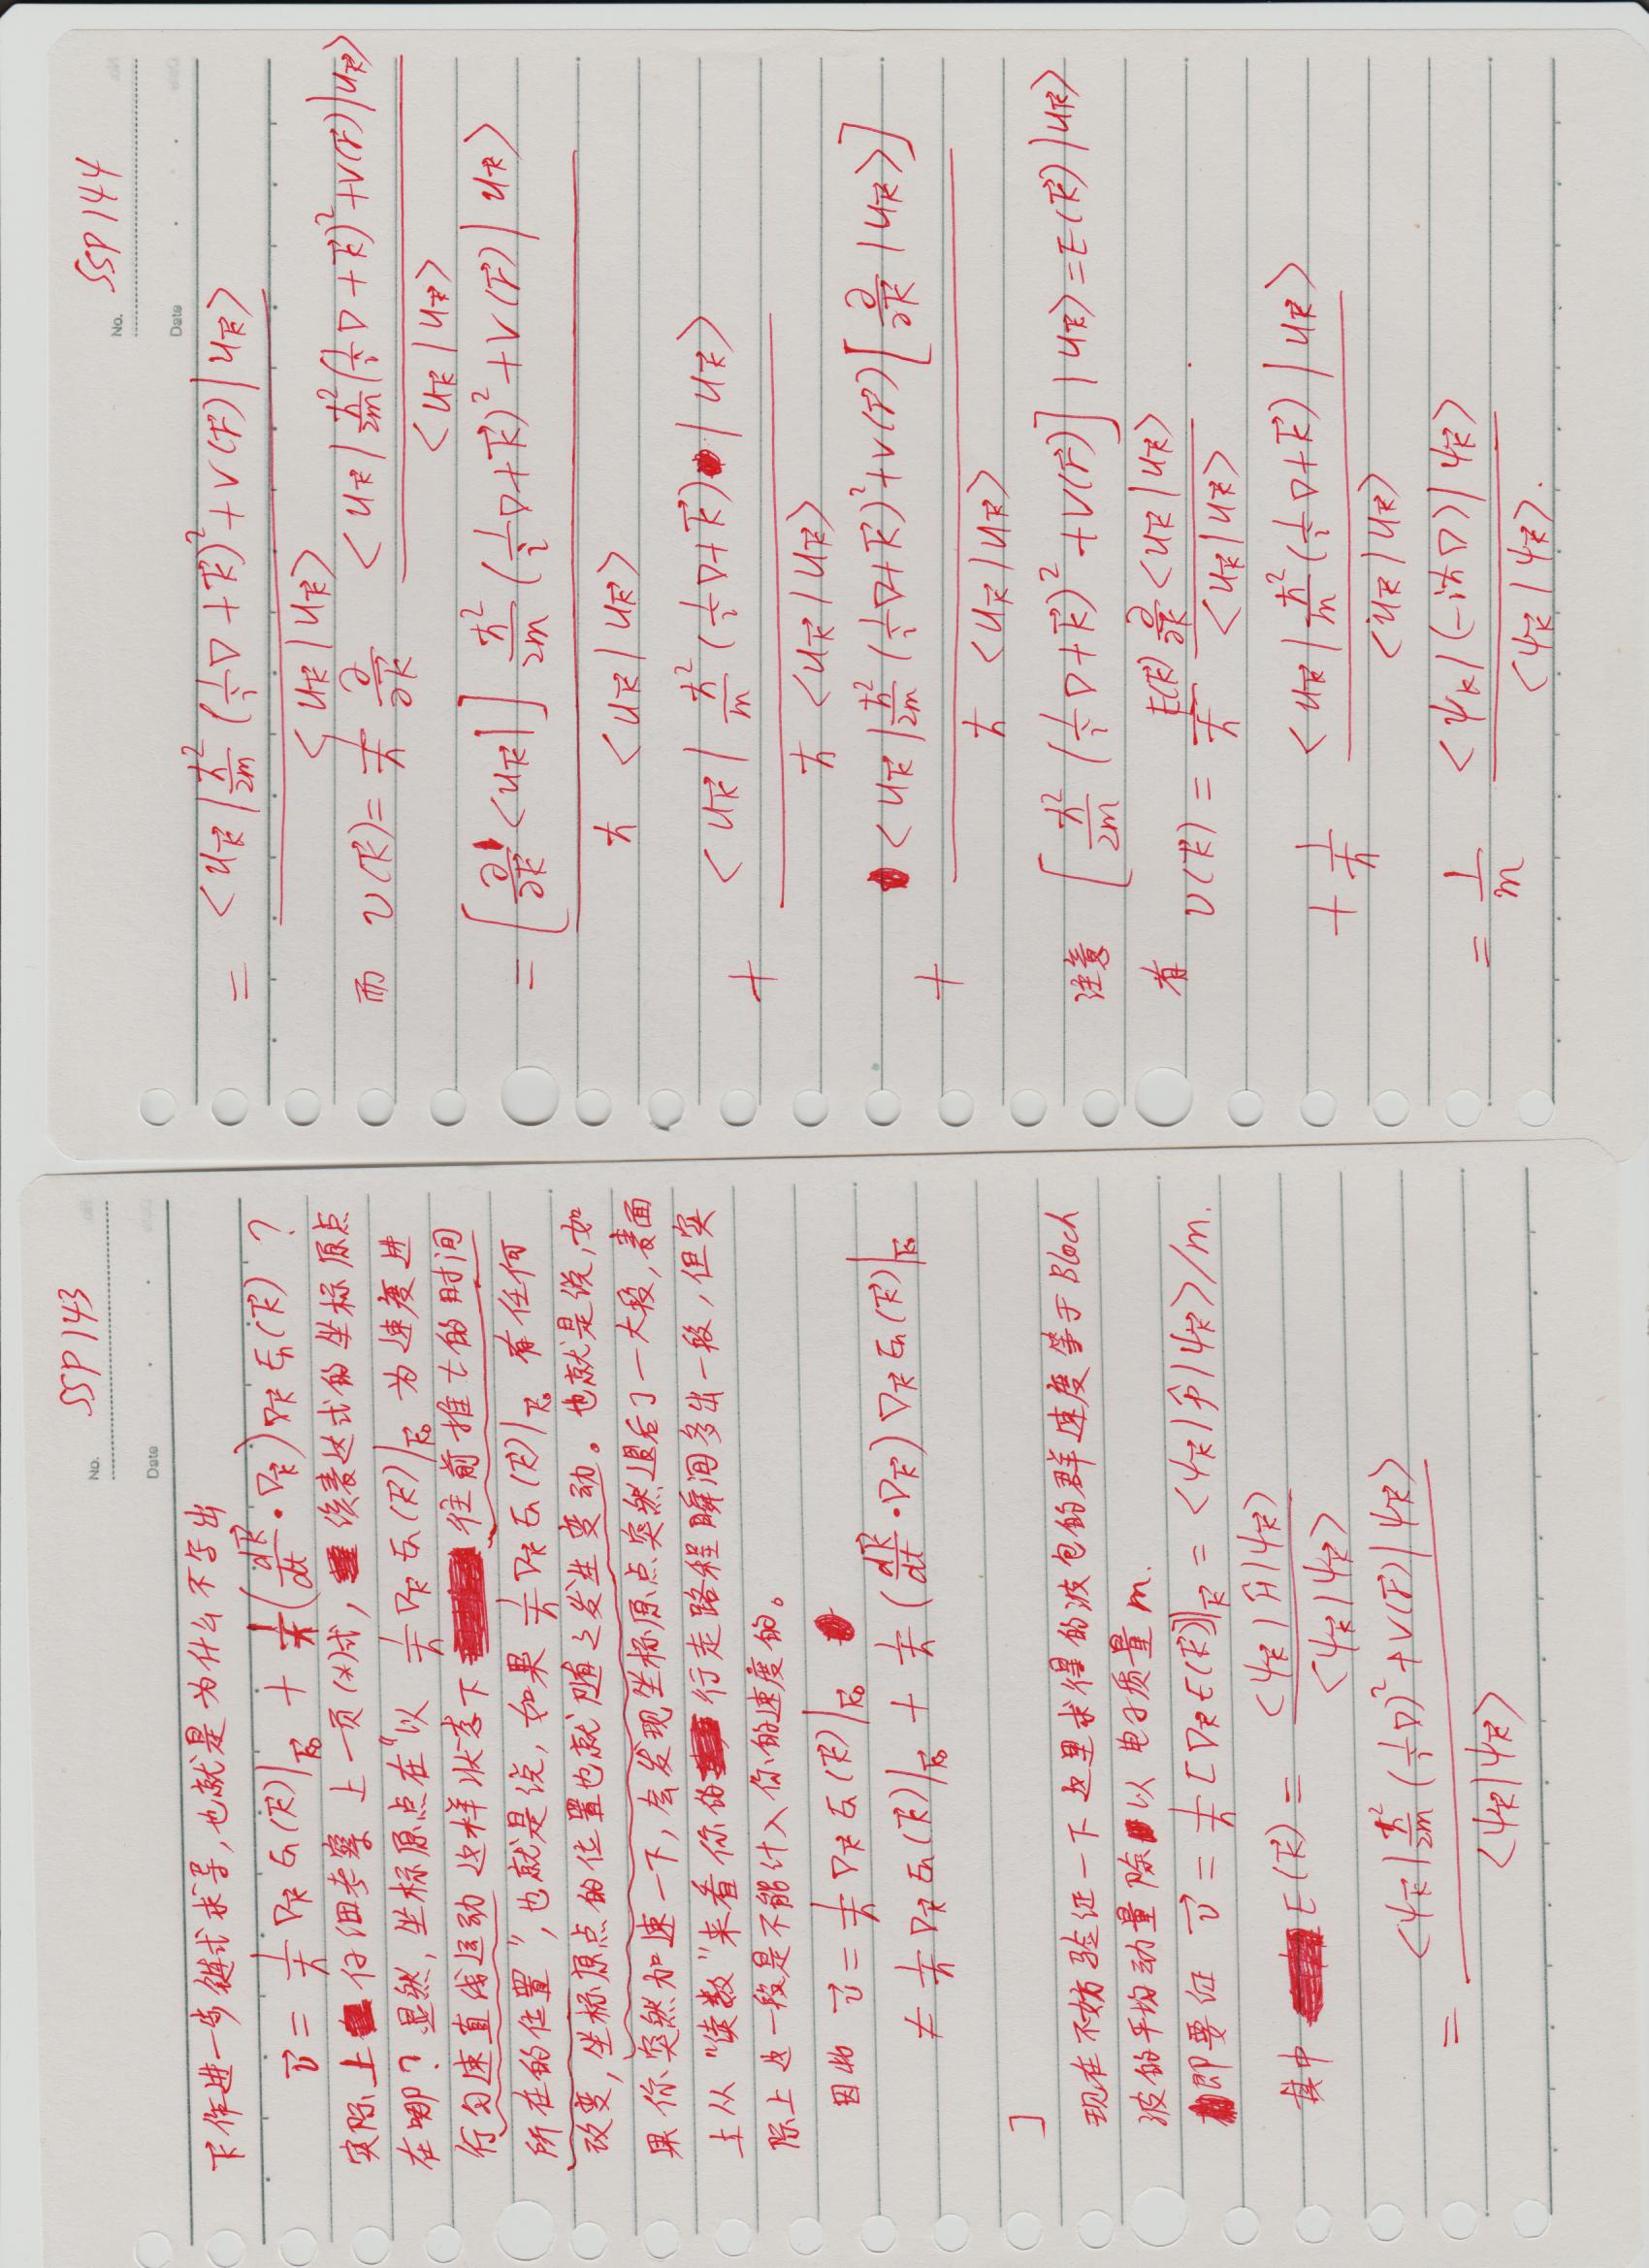 No. SSP 143
Date
下作进一步链式求导,也就是为什么不写出
$\vec{v} = \frac{1}{\hbar} \nabla_{\vec{k}} E_n(\vec{k})|_{\vec{k}_0} + \frac{1}{\hbar} (\frac{d\vec{k}}{dt} \cdot \nabla_{\vec{k}}) \nabla_{\vec{k}} E_n(\vec{k})$ ?
实际上 仔细考察上一页(*)式, 该表达式的坐标原点
在哪? 显然, 坐标原点在"以 $\frac{1}{\hbar} \nabla_{\vec{k}} E_n(\vec{k})|_{\vec{k}_0}$ 为速度进
行匀速直线运动这样状态下 往前推t的时间
所在的位置", 也就是说, 如果 $\frac{1}{\hbar} \nabla_{\vec{k}} E_n(\vec{k})|_{\vec{k}_0}$ 有任何
改变, 坐标原点的位置也就随之发生变动。也就是说, 如
果你突然加速一下, 会发现坐标原点突然退后了一大段, 表面
上从"读数"来看你的 行走路程瞬间多出一段, 但实
际上这一段是不能计入你的速度的。
因此 $\vec{v} = \frac{1}{\hbar} \nabla_{\vec{k}} E_n(\vec{k})|_{\vec{k}_0}$
$\neq \frac{1}{\hbar} \nabla_{\vec{k}} E_n(\vec{k})|_{\vec{k}_0} + \frac{1}{\hbar} (\frac{d\vec{k}}{dt} \cdot \nabla_{\vec{k}}) \nabla_{\vec{k}} E_n(\vec{k})|_{\vec{k}_0}$
]
现在不妨验证一下这里求得的波包的群速度等于Bloch
波的平均动量除以电子质量m.
即要证 $\vec{v} = \frac{1}{\hbar} [\nabla_{\vec{k}} E(\vec{k})]|_{\vec{k}} = \langle \psi_{\vec{k}} | \hat{p} | \psi_{\vec{k}} \rangle / m.$
其中 $E(\vec{k}) = \frac{\langle \psi_{\vec{k}} | \hat{H} | \psi_{\vec{k}} \rangle}{\langle \psi_{\vec{k}} | \psi_{\vec{k}} \rangle}$
$= \frac{\langle \psi_{\vec{k}} | \frac{\hbar^2}{2m} (\frac{1}{i} \nabla)^2 + V(\vec{r}) | \psi_{\vec{k}} \rangle}{\langle \psi_{\vec{k}} | \psi_{\vec{k}} \rangle}$
No. SSP 144
Date
$= \frac{\langle u_{\vec{k}} | \frac{\hbar^2}{2m} (\frac{1}{i} \nabla + \vec{k})^2 + V(\vec{r}) | u_{\vec{k}} \rangle}{\langle u_{\vec{k}} | u_{\vec{k}} \rangle}$
而 $v(\vec{k}) = \frac{1}{\hbar} \frac{\partial}{\partial \vec{k}} \frac{\langle u_{\vec{k}} | \frac{\hbar^2}{2m} (\frac{1}{i} \nabla + \vec{k})^2 + V(\vec{r}) | u_{\vec{k}} \rangle}{\langle u_{\vec{k}} | u_{\vec{k}} \rangle}$
$= \frac{[\frac{\partial}{\partial \vec{k}} \langle u_{\vec{k}} |] \frac{\hbar^2}{2m} (\frac{1}{i} \nabla + \vec{k})^2 + V(\vec{r}) | u_{\vec{k}} \rangle}{\hbar \langle u_{\vec{k}} | u_{\vec{k}} \rangle}$
$+ \frac{\langle u_{\vec{k}} | \frac{\hbar^2}{m} (\frac{1}{i} \nabla + \vec{k}) | u_{\vec{k}} \rangle}{\hbar \langle u_{\vec{k}} | u_{\vec{k}} \rangle}$
$+ \frac{\langle u_{\vec{k}} | \frac{\hbar^2}{2m} (\frac{1}{i} \nabla + \vec{k})^2 + V(\vec{r}) [\frac{\partial}{\partial \vec{k}} | u_{\vec{k}} \rangle]}{\hbar \langle u_{\vec{k}} | u_{\vec{k}} \rangle}$
注意 $[\frac{\hbar^2}{2m} (\frac{1}{i} \nabla + \vec{k})^2 + V(\vec{r})] | u_{\vec{k}} \rangle = E(\vec{k}) | u_{\vec{k}} \rangle$
有 $v(\vec{k}) = \frac{E(\vec{k})}{\hbar} \frac{\frac{\partial}{\partial \vec{k}} \langle u_{\vec{k}} | u_{\vec{k}} \rangle}{\langle u_{\vec{k}} | u_{\vec{k}} \rangle}$ .
$+ \frac{1}{\hbar} \frac{\langle u_{\vec{k}} | \frac{\hbar^2}{m} (\frac{1}{i} \nabla + \vec{k}) | u_{\vec{k}} \rangle}{\langle u_{\vec{k}} | u_{\vec{k}} \rangle}$
$= \frac{1}{m} \frac{\langle \psi_k | (-i\hbar \nabla) | \psi_{\vec{k}} \rangle}{\langle \psi_{\vec{k}} | \psi_{\vec{k}} \rangle}.$